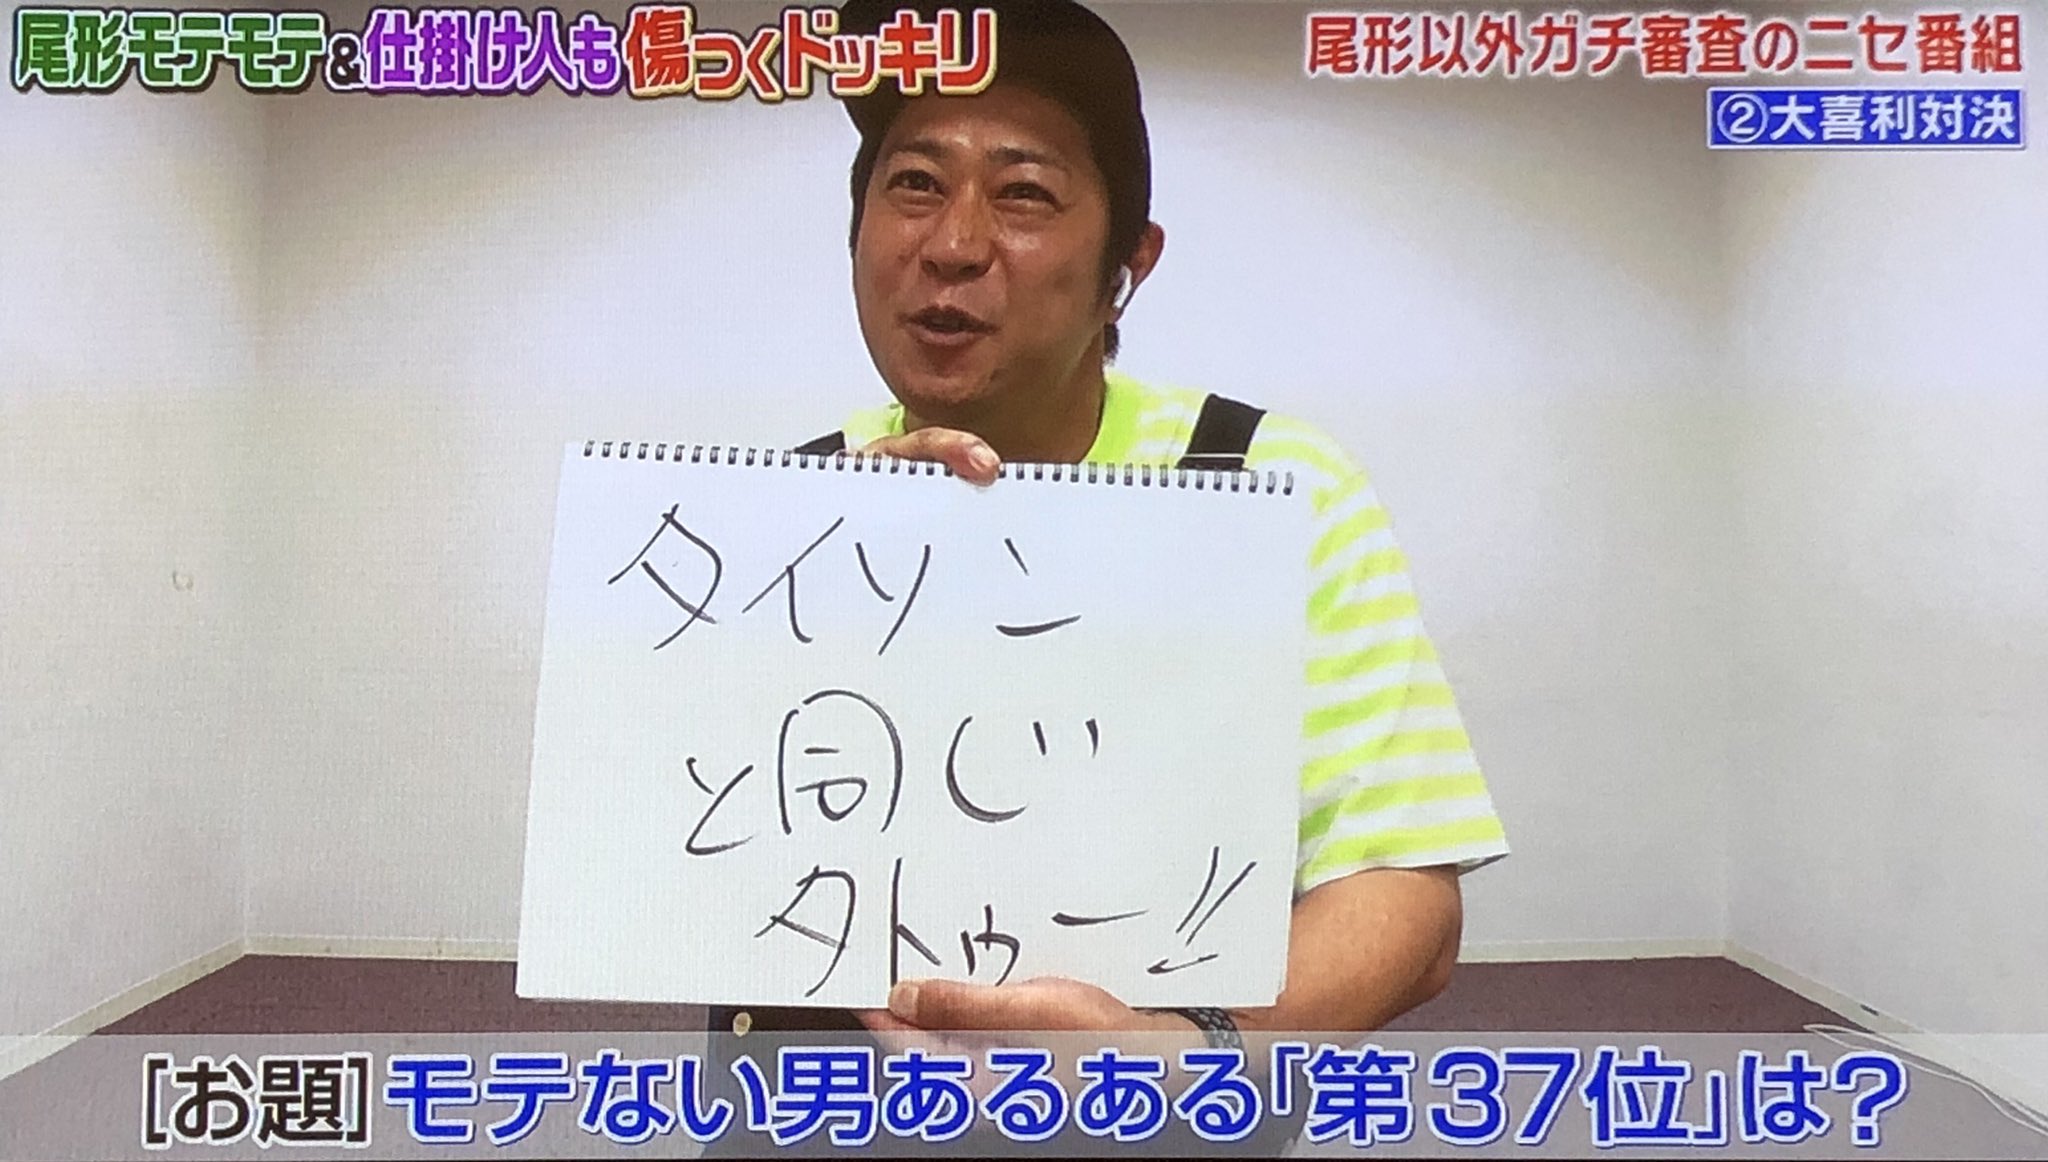 尾形モテモテ&仕掛け人も傷つくドッキリ
尾形以外ガチ審査のニセ番組
②大喜利対決
タイソン
と同じ
タトゥー!!
[お題]モテない男あるある「第37位」は?